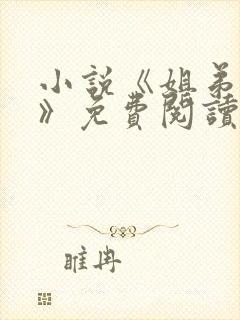 小說《姐弟
》免費閱讀
睢冉